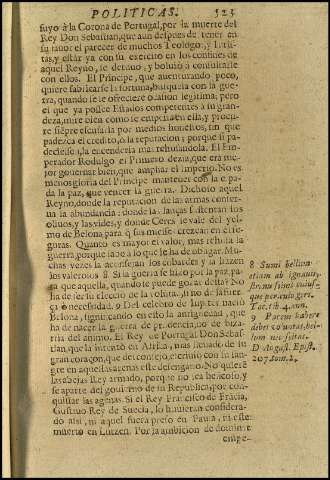 POLITICAS. 523
suyo à la Corona de Portugal, por la muerte del
Rey Don Sebastian, que aun despues de tener en
su fauor el parecer de muchos Teologos, y Iuris-
tas, y estar ya con su exercito en los confines de
aquel Reyno, se detuuo, y boluiò à consultarse
con ellos. El Principe, que auenturando poco,
quiere fabricarse la fortuna, busquela con la gue-
rra, quando se le ofreciere ocasion legitima; pero
el que ya possee Estados competentes à su gran-
deza, mire bien como se empeña en ella, y procu-
re siẽpre escusarla por medios honestos, sin que
padezca el credito, o la reputacion; porque si pa-
deciesse, la encenderia mas rehusandola. El Em-
perador Rodulfo el Primero dezia, que era me-
jor gouernar bien, que ampliar el imperio. No es
menos gloria del Principe mantener con la espa-
da la paz, que vencer la guerra. Dichoso aquel
Reyno, donde la reputacion de las armas conser-
ua la abundancia: donde las lanças sustentan los
oliuos, y las vides, y donde Ceres se vale del yel-
mo de Belona para q̃ sus mieses crezcan en èl se-
guras. Quanto es mayor el valor, mas rehusa la
guerra, porque sabe a lo que le ha de obligar. Mu-
chas vezes la aconsejan los cobardes, y la hazen
los valerosos 8 Si la guerra se hizo por la paz, pa-
ra que aquella, quando se puede gozar desta? No
ha de ser su eleccion de la voluntad, sino de la fuer-
ça ò necessidad. 9 Del celebro de Iupiter naciò
Belona, significando en esto la antiguedad, que
ha de nacer la guerra de prudencia, no de biza-
rria del animo. El Rey de Portugal Don Sebas-
tian, que la intentò en Africa, mas lleuado de su
gran coraçon, que del consejo, escriuiò con su san-
gre en aquellas arenas este desengaño. No quieren
las abejas Rey armado, porque no sea belicoso, y
se aparte del gouierno de su Republica, por con-
quistar las agenas. Si el Rey Francisco de Frãcia,
Gustauo Rey de Suecia, lo huuieran considera-
do assi, ni aquel fuera preso en Pauia, ni este
muerto en Lutzen. Por la ambicion de dominar
empe-
8 Sumi bellum
etiam ab ignauis,
strenuissimi cuius-
que periculo geri.
Tac. lib. 4. hist.
9 Pacem habere
debet voluntas, bel-
lum necessitas.
D. August. Epist.
207. tom. 2.